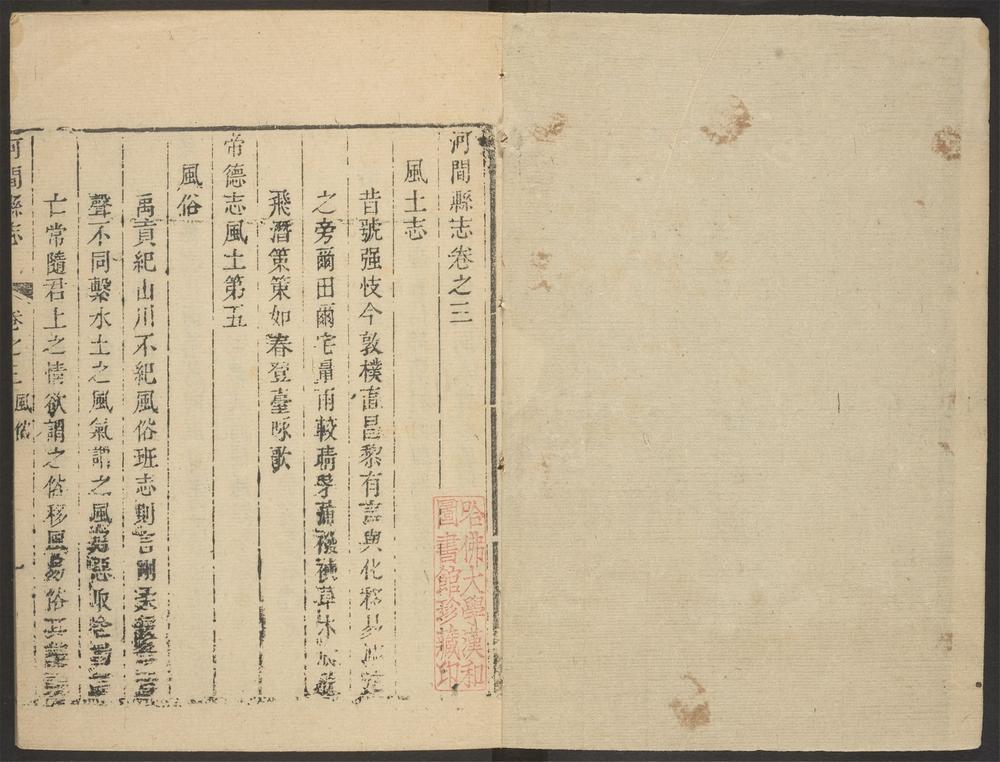 河間縣志卷之三
風土志
昔號强忮今敦樸直昌黎有言與化移易
之旁爾田爾宅量雨較晴
飛潛策策如春登臺咏歌
帝德志風土第五
風俗
禹貢紀山川不紀風俗班志則言剛柔緩急音
聲不同繫水土之風氣謂之風好惡取舍
亡常隨君上之情欲謂之俗移風易俗
河間縣志 卷之三 風俗 一
哈佛大學漢和
圖書館珍藏印